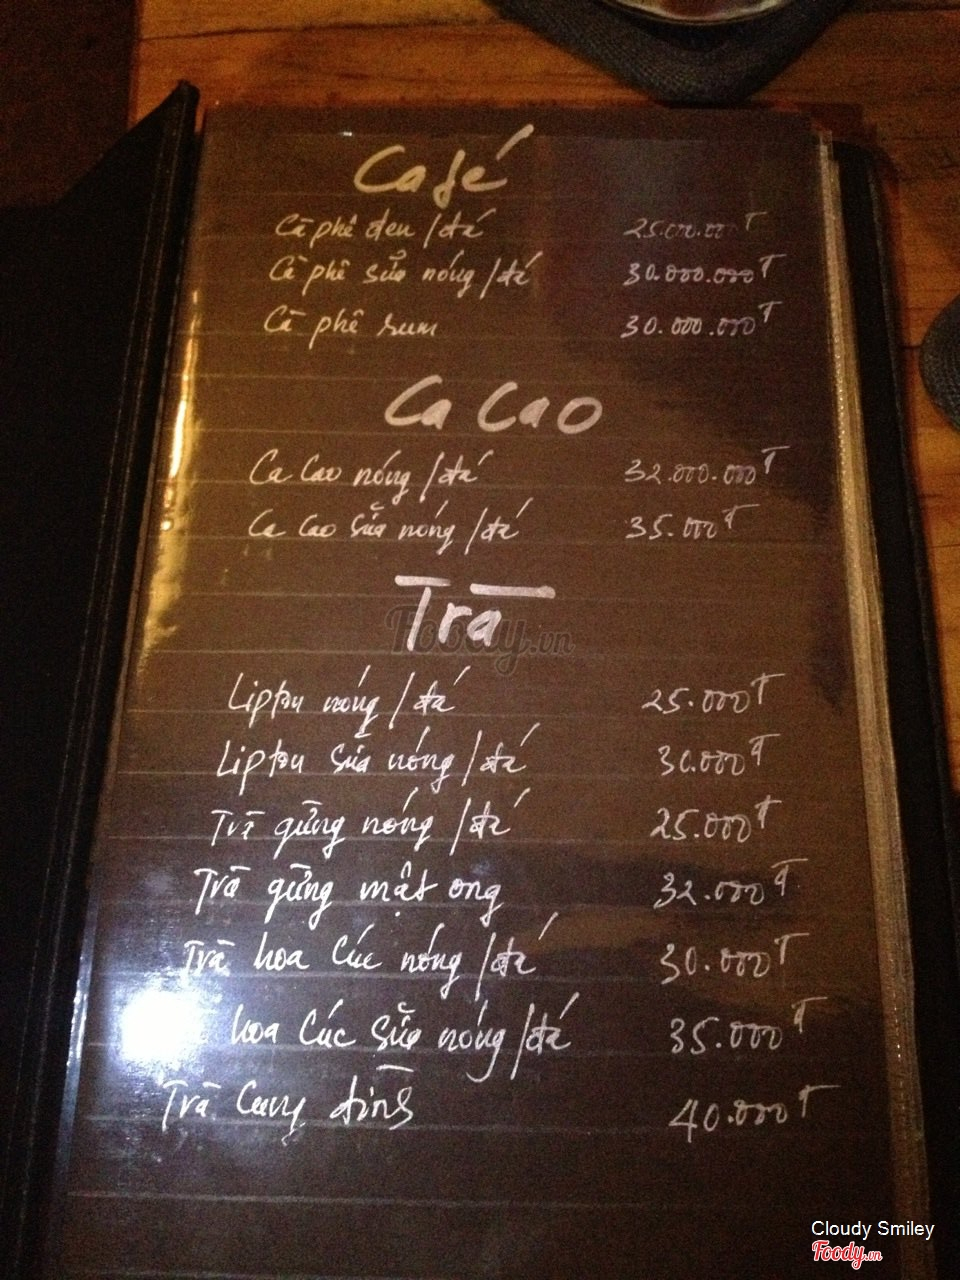 Café
Cà phê đen / đá 25.000.000đ
Cà phê sữa nóng / đá 30.000.000đ
Cà phê rum 30.000.000đ
Ca Cao
Ca Cao nóng / đá 32.000.000đ
Ca Cao sữa nóng / đá 35.000đ
Trà
Foody.vn
Lipton nóng / đá 25.000đ
Lipton sữa nóng / đá 30.000đ
Trà gừng nóng / đá 25.000đ
Trà gừng mật ong 32.000đ
Trà hoa cúc nóng / đá 30.000đ
hoa cúc sữa nóng / đá 35.000đ
Trà Cung đình 40.000đ
Cloudy Smiley
Foody.vn